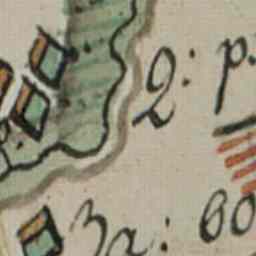 2: p.
3a: 60